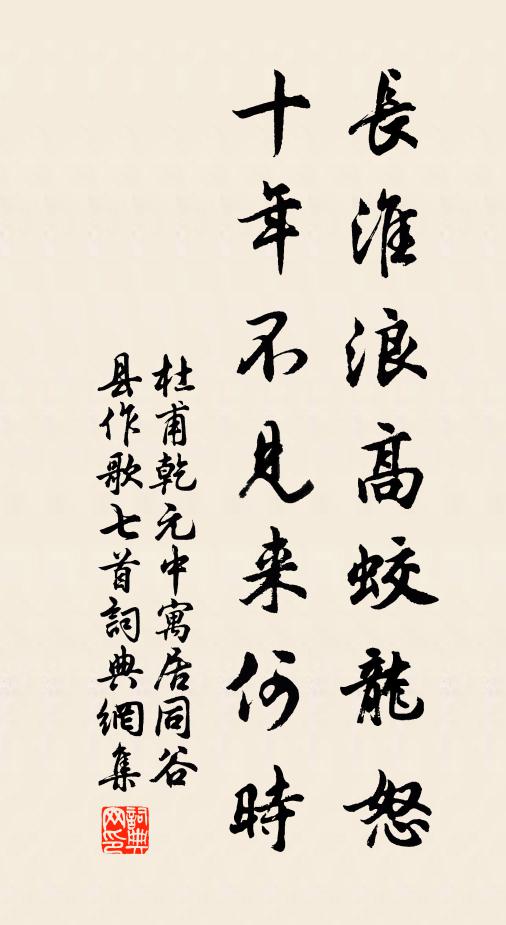 長淮浪高蛟龍怒
十年不見来何時
杜甫乾元中寓居同谷
县作歌七首詞典網集
詞典
网印